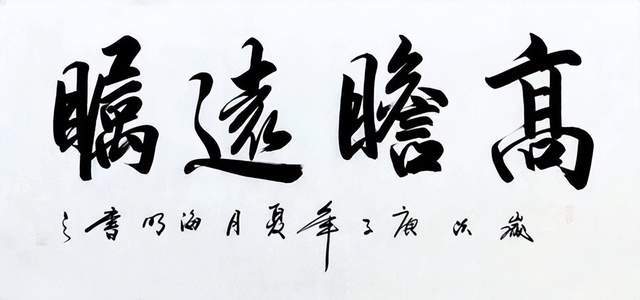 高瞻遠矚
歲次庚子年夏月海明書之